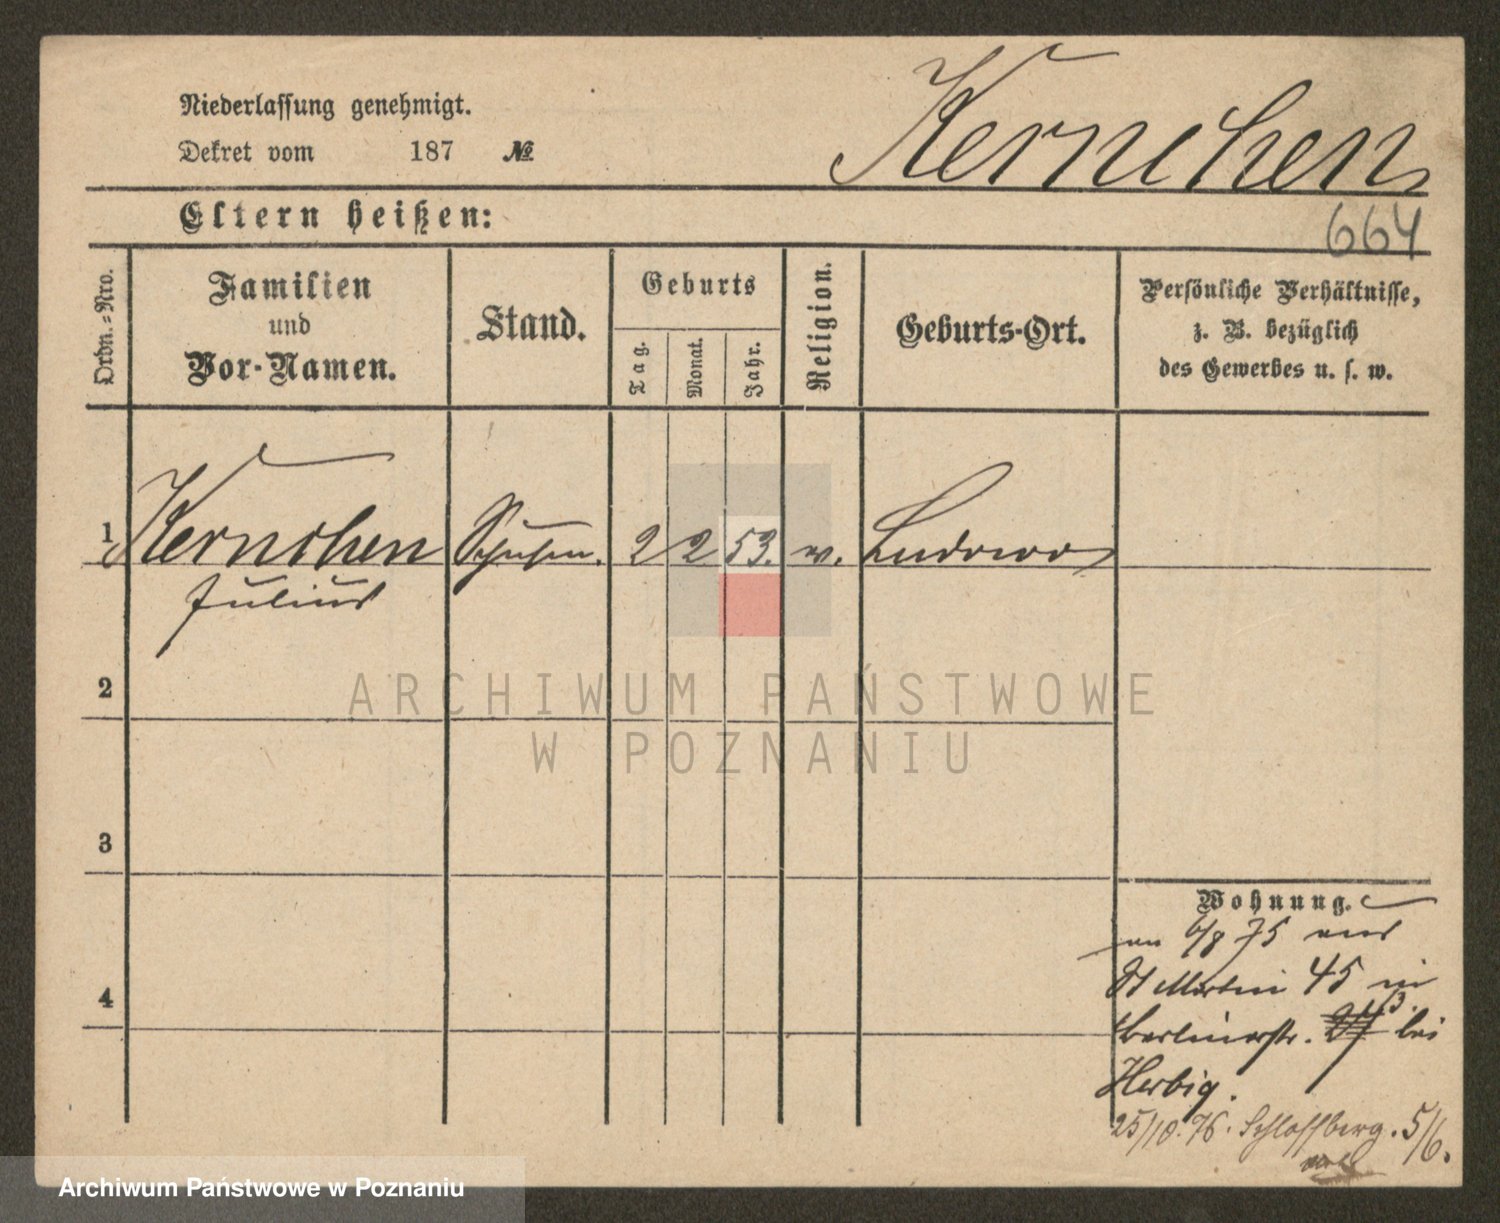 Niederlassung genehmigt.
Dekret vom 187 №
Kernchen
Eltern heißen:
664
Ordn.-Nro.
Familien
und
Vor-Namen.
Stand.
Geburts
Tag.
Monat.
Jahr.
Religion.
Geburts-Ort.
Persönliche Verhältnisse,
z. B. bezüglich
des Gewerbes u. s. w.
1 Kernchen 2 2 53.
Julius
2
ARCHIWUM PAŃSTWOWE
W POZNANIU
3
Wohnung.
6/8 75 aus
St Martin 45 in
4
Berlinerstr. 3. bei
Herbig.
25/10. 76. Schloßberg. 5/6.
Archiwum Państwowe w Poznaniu